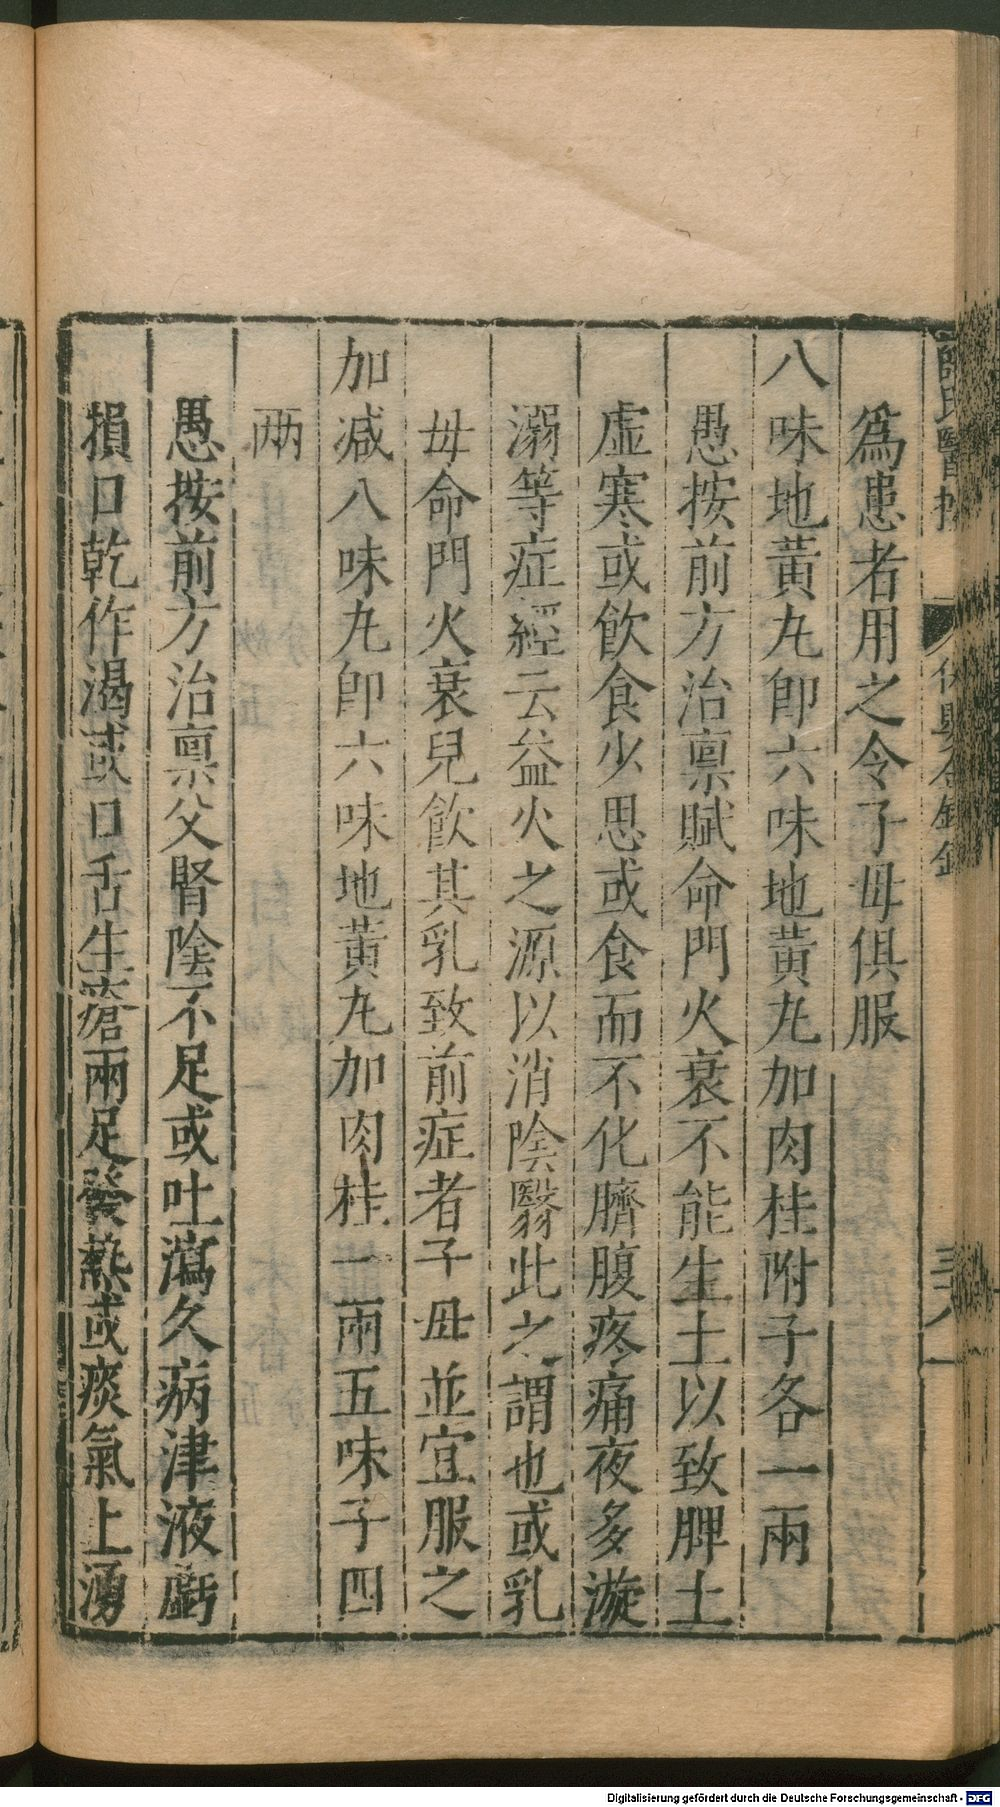 爲患者用之令子母俱服
八味地黃丸卽六味地黃丸加肉桂附子各一兩
愚按前方治禀賦命門火衰不能生土以致脾土
虛寒或飲食少思或食而不化臍腹疼痛夜多漩
溺等症經云益火之源以消陰翳此之謂也或乳
母命門火衰兒飲其乳致前症者子母並宜服之
加减八味丸卽六味地黃丸加肉桂一兩五味子四
兩
愚按前方治禀父腎陰不足或吐瀉久病津液虧
損口乾作渴或口舌生瘡兩足發熱或痰氣上湧
Digitalisierung gefördert durch die Deutsche Forschungsgemeinschaft - DFG